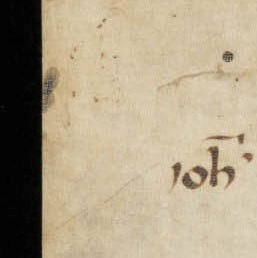 ioh̅'